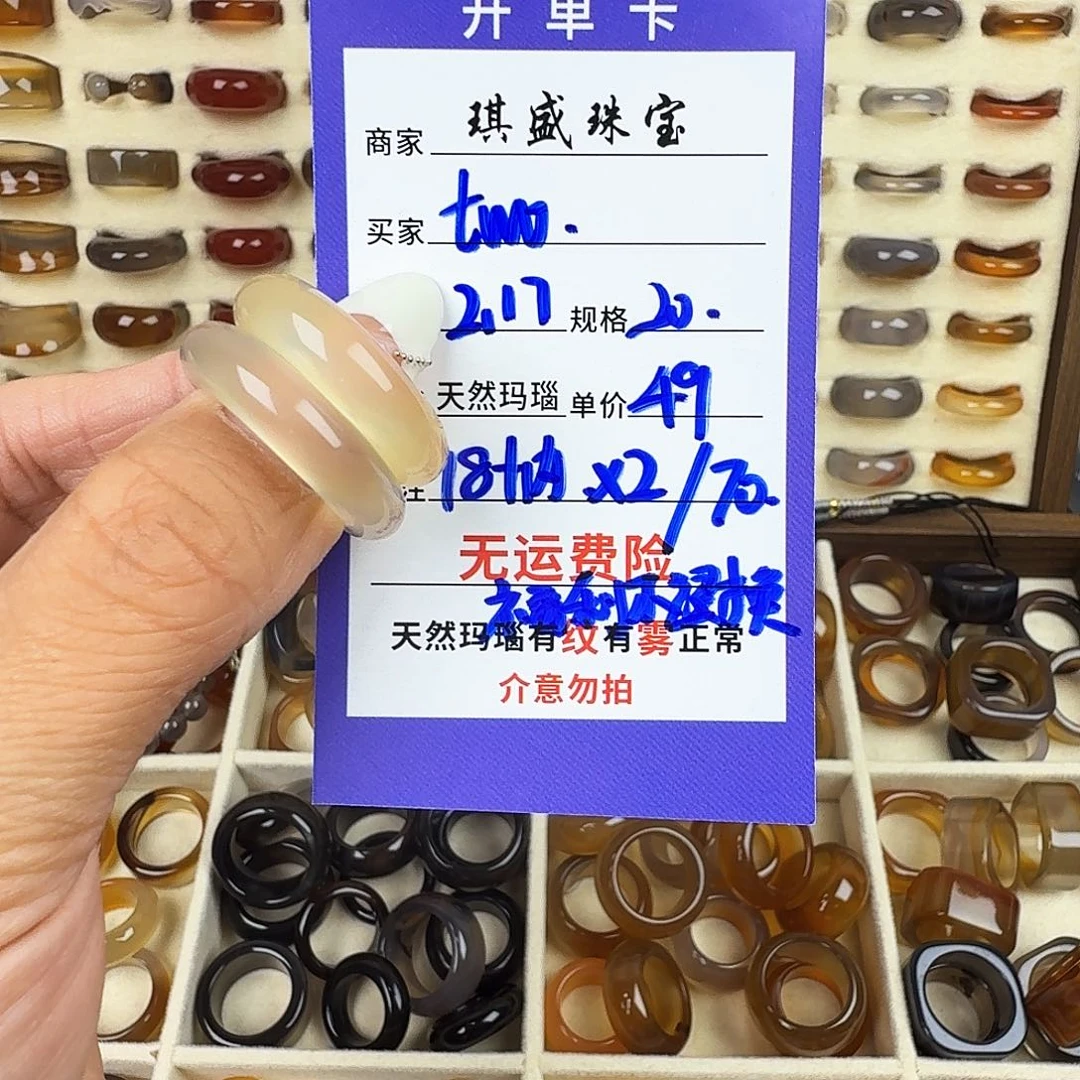 开单卡
商家 琪盛珠宝
买家 two.
2.17 规格 20.
天然玛瑙 单价 49
注 18 x2/
无运费险
天然玛瑙有纹有雾正常
介意勿拍